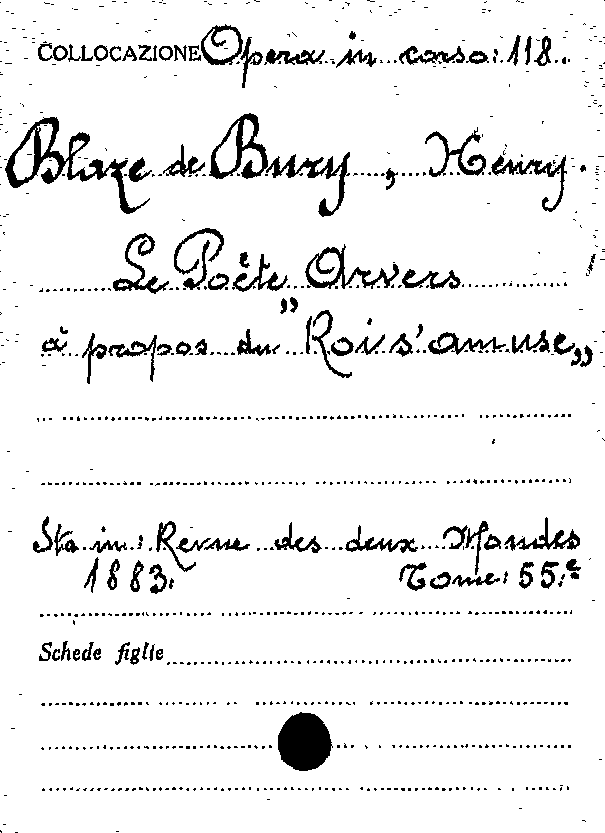 COLLOCAZIONE Opera in corso: 118.
Blaze de Bury, Henry.
Le Poëte Arvers
à propos du "Roi s'amuse"
Sta in: Revue des deux Mondes
1883. Tome: 55.e
Schede figlie